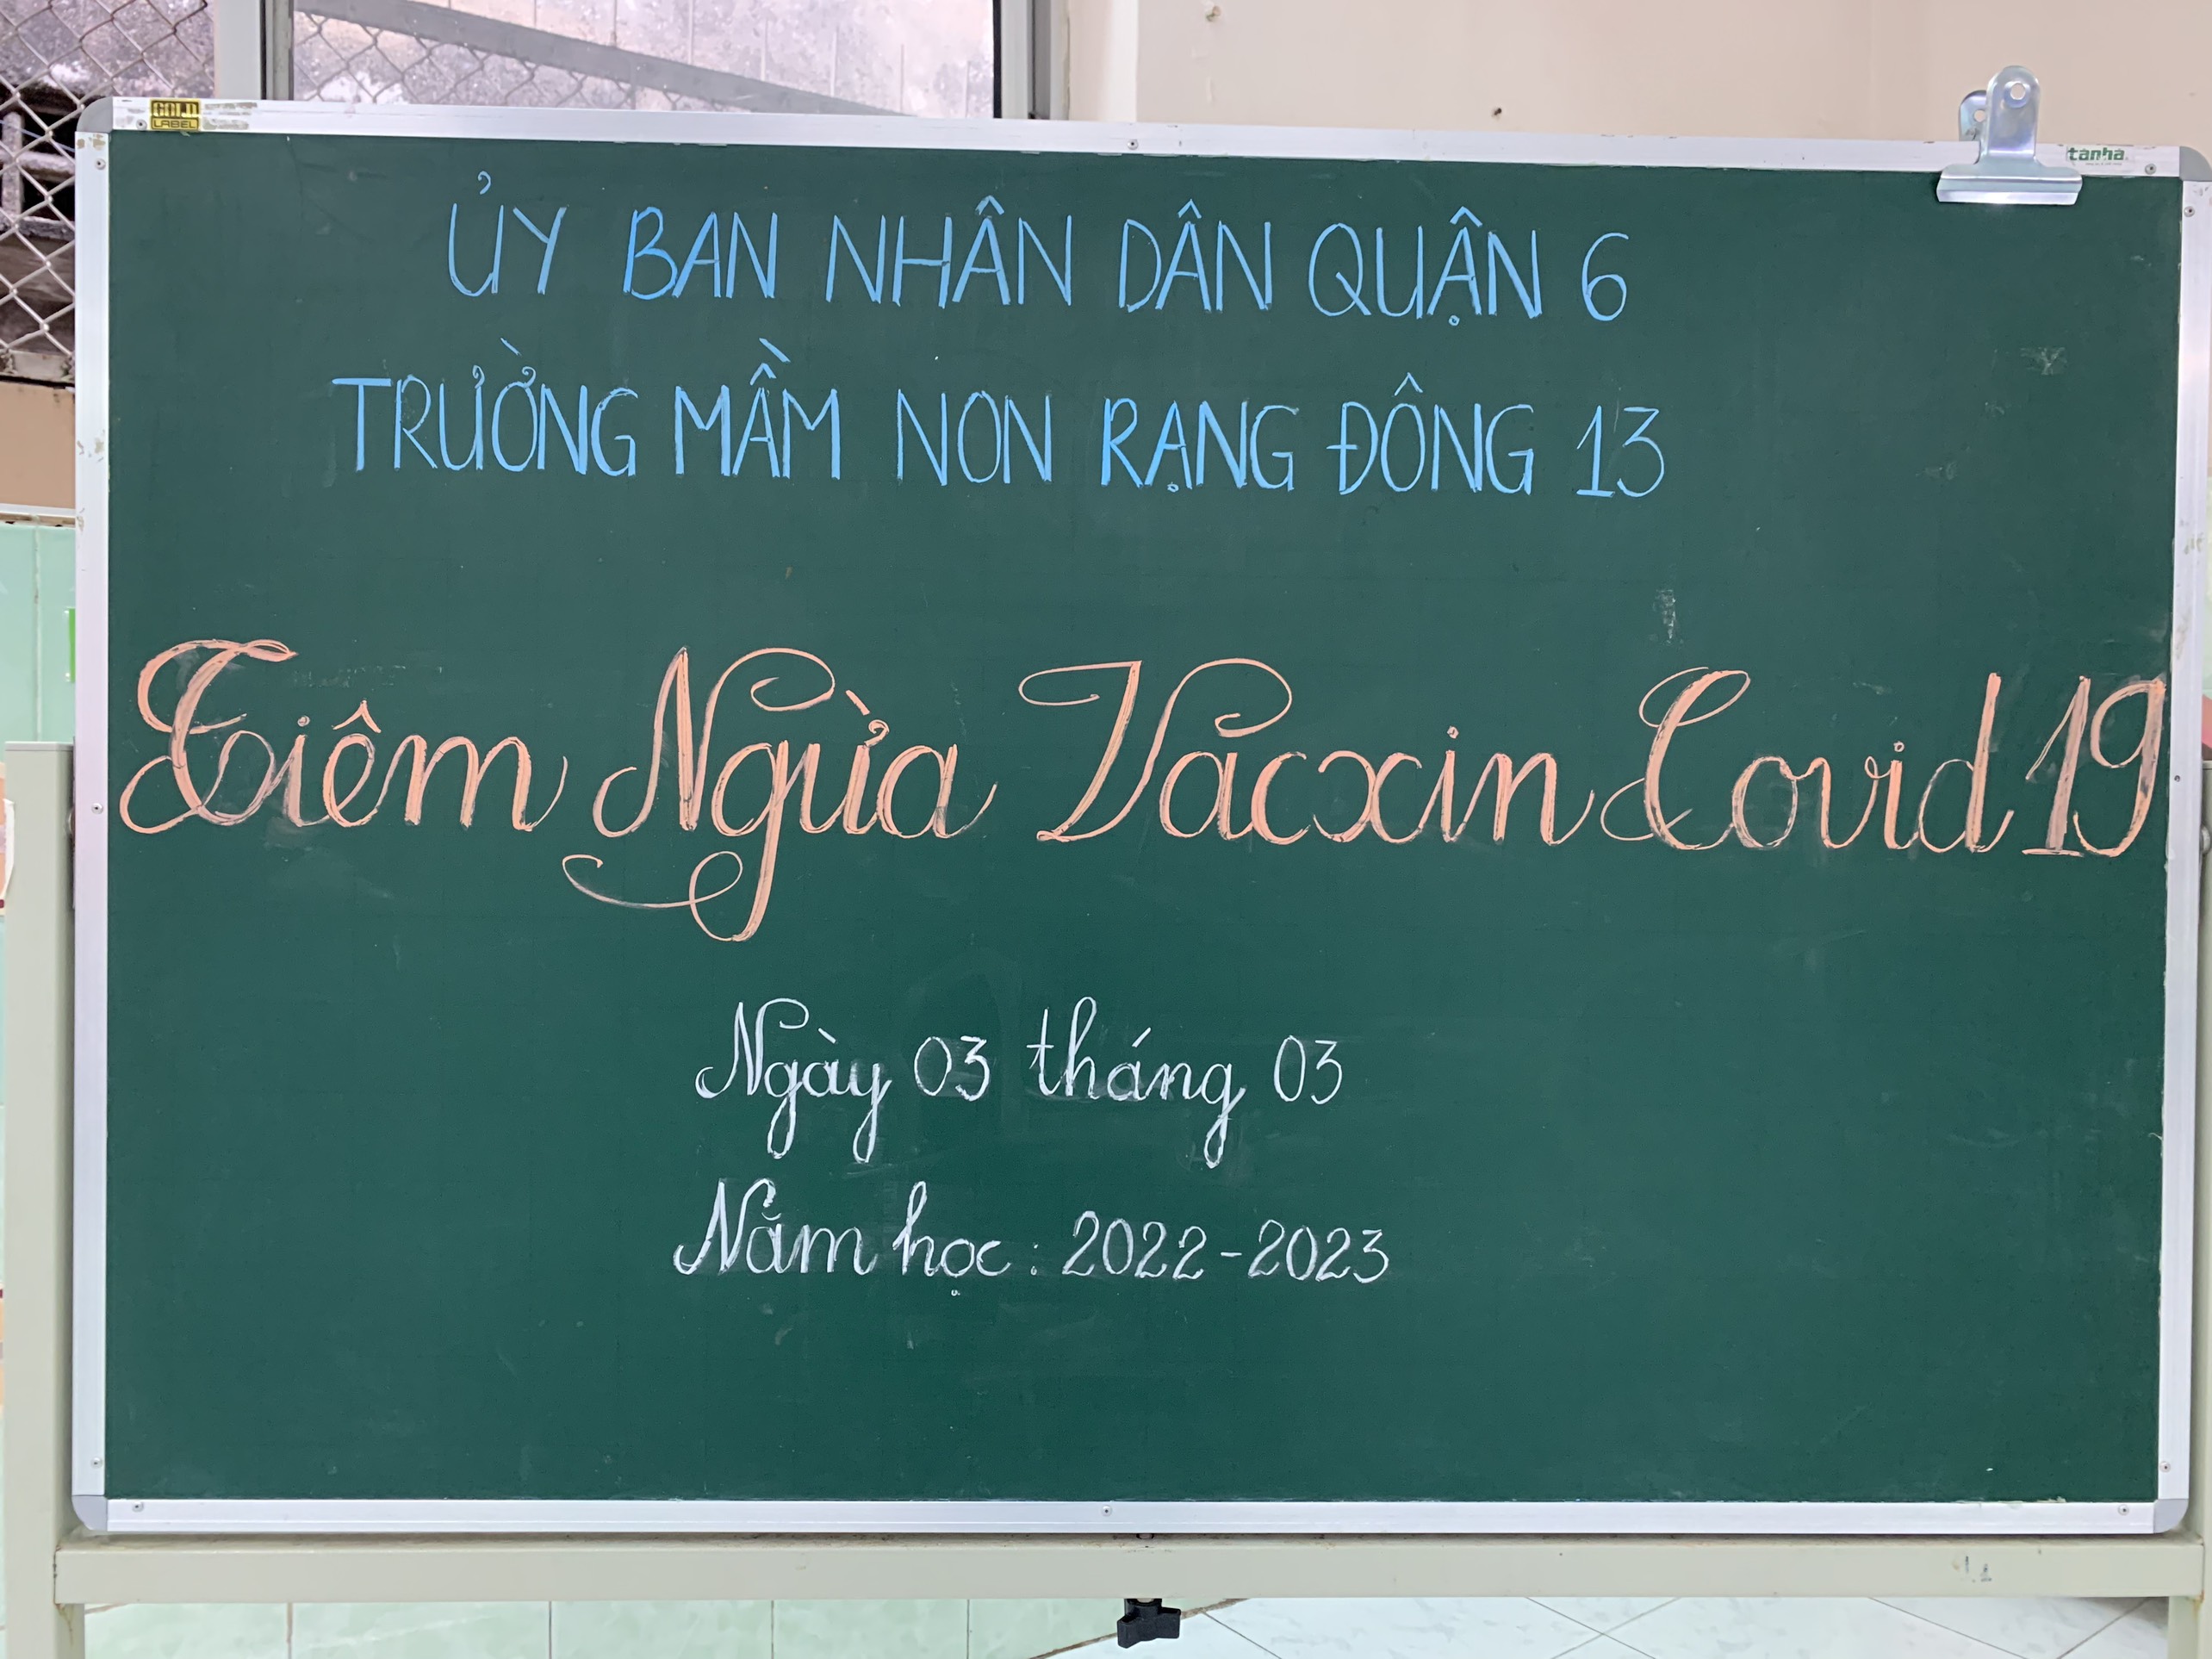 GOLD
LABEL
tanhà
ỦY BAN NHÂN DÂN QUẬN 6
TRƯỜNG MẦM NON RẠNG ĐÔNG 13
Tiêm Ngừa Vacxin Covid 19
Ngày 03 tháng 03
Năm học : 2022-2023